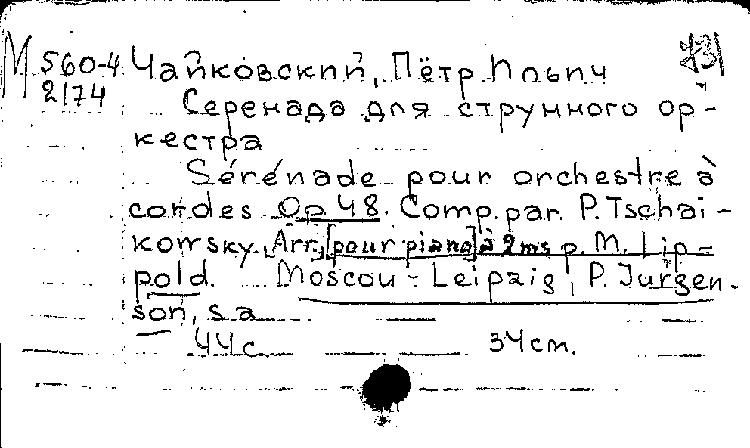 М 560-4 Чайковский, Пётр Ильич
2174 Серенада для струнного ор-
кестра
Sérénade pour orchestre à
cordes Op 48. Comp. par. P. Tschai-
kowsky. Arr. [pour piano] à 2ms p. M. Lip-
pold. Moscou - Leipzig, P. Jurgen-
son, s.a
44 c. 34 cm.